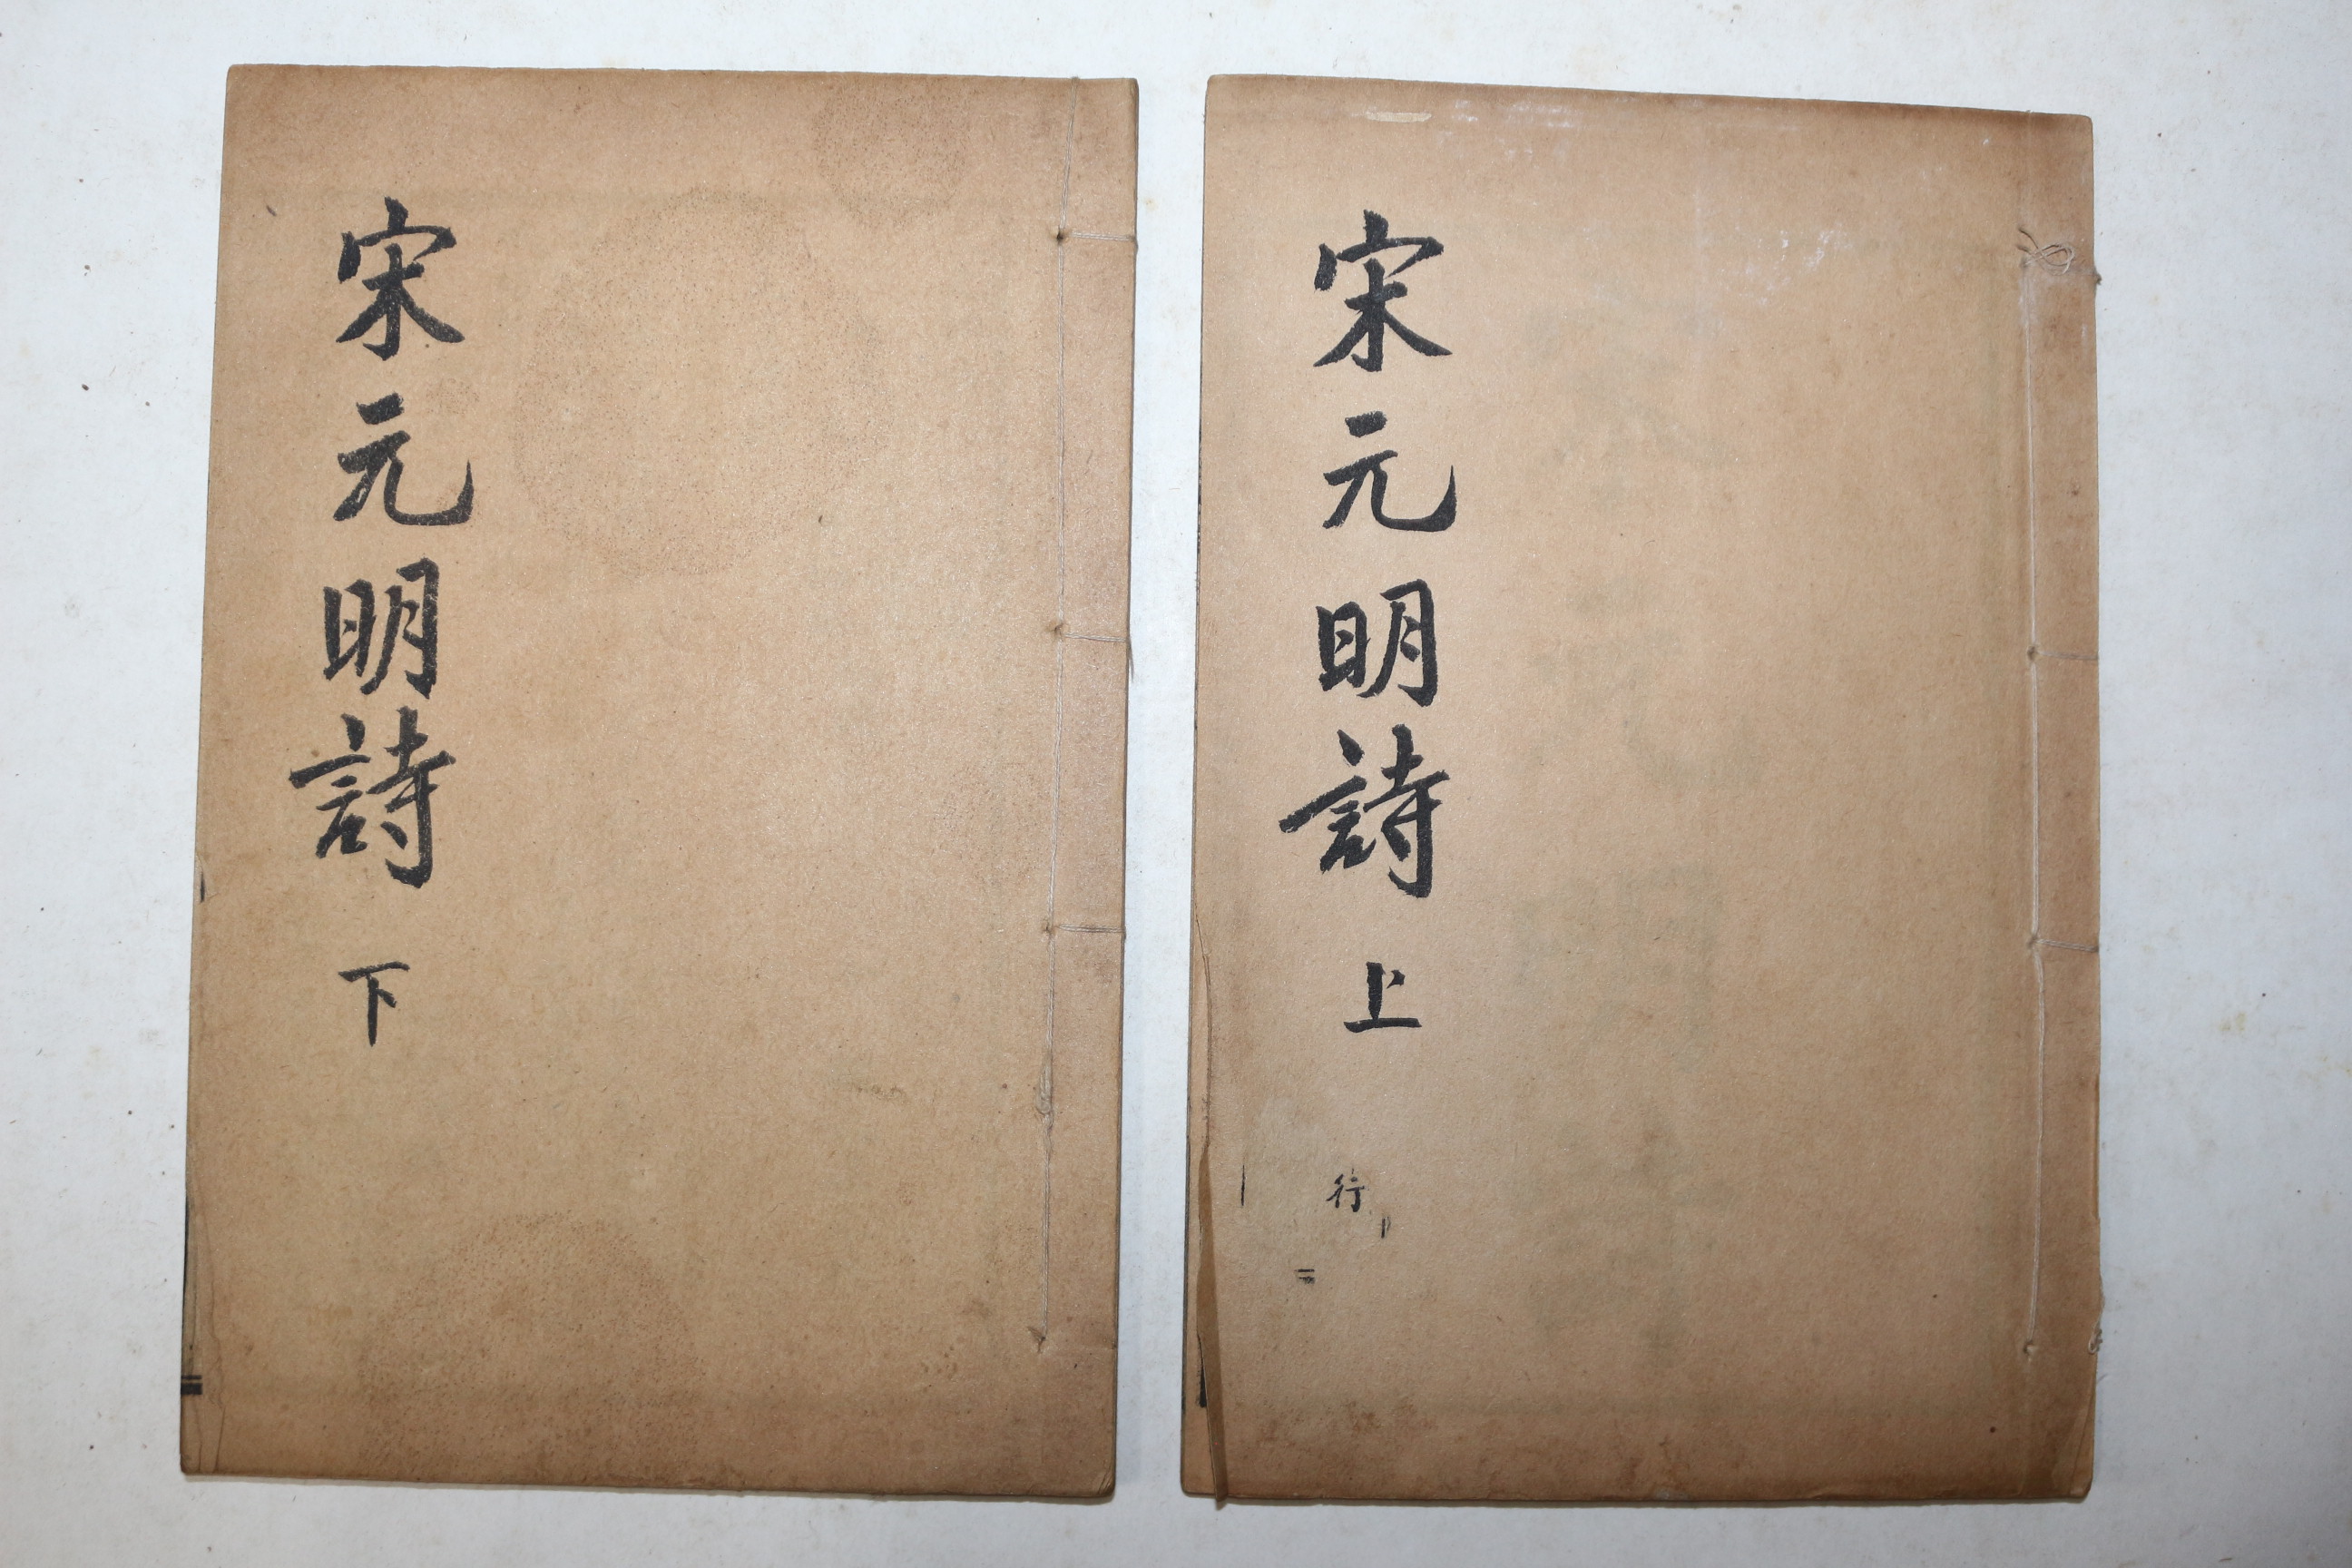 宋元明詩 上
行
宋元明詩 下